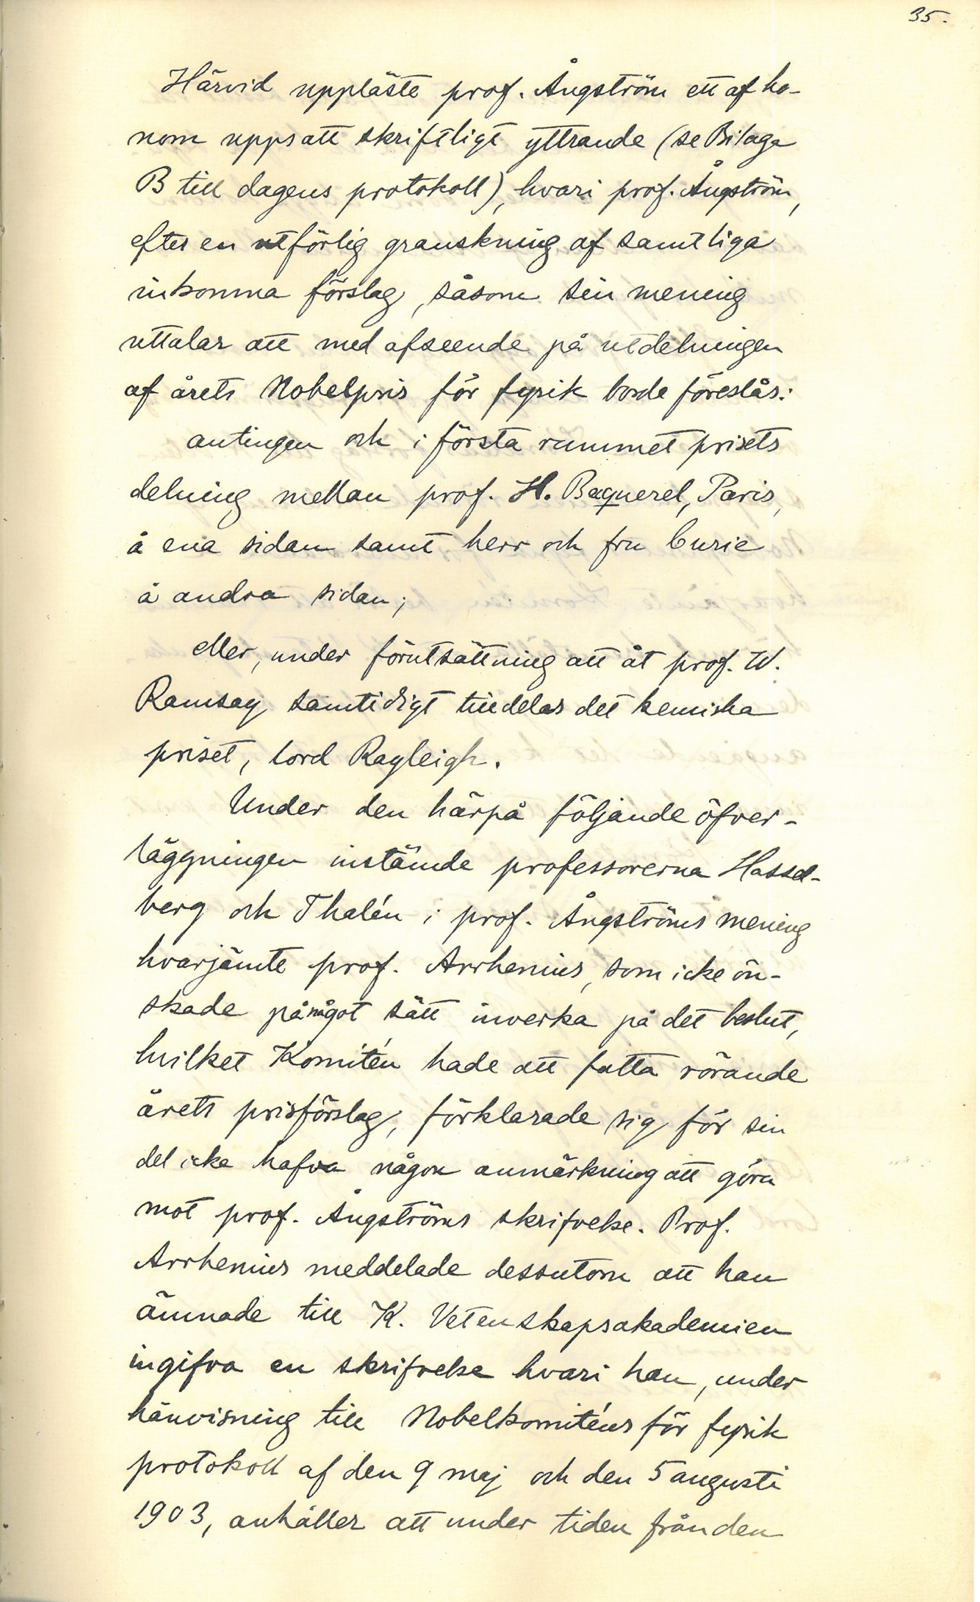 35.
Härvid uppläste prof. Ångström ett af ho-
nom uppsatt skriftligt yttrande (se Bilaga
B till dagens protokoll), hvari prof. Ångström,
efter en utförlig granskning af samtliga
inkomna förslag, såsom sin mening
uttalar att med afseende på utdelningen
af årets Nobelpris för fysik borde föreslås:
antingen och i första rummet prisets
delning mellan prof. H. Becquerel, Paris,
å ena sidan samt herr och fru Curie
å andra sidan;
eller, under förutsättning att åt prof. W.
Ramsay samtidigt tilldelas det kemiska
priset, lord Rayleigh.
Under den härpå följande öfver-
läggningen instämde professorerna Hassel-
berg och Thalén i prof. Ångströms mening
hvarjämte prof. Arrhenius, som icke ön-
skade på något sätt inverka på det beslut,
hvilket Komitén hade att fatta rörande
årets prisförslag, förklarade sig för sin
del icke hafva någon anmärkning att göra
mot prof. Ångströms skrifvelse. Prof.
Arrhenius meddelade dessutom att han
ämnade till K. Vetenskapsakademien
ingifva en skrifvelse hvari han, under
hänvisning till Nobelkomiténs för fysik
protokoll af den 9 maj och den 5 augusti
1903, anhåller att under tiden från den